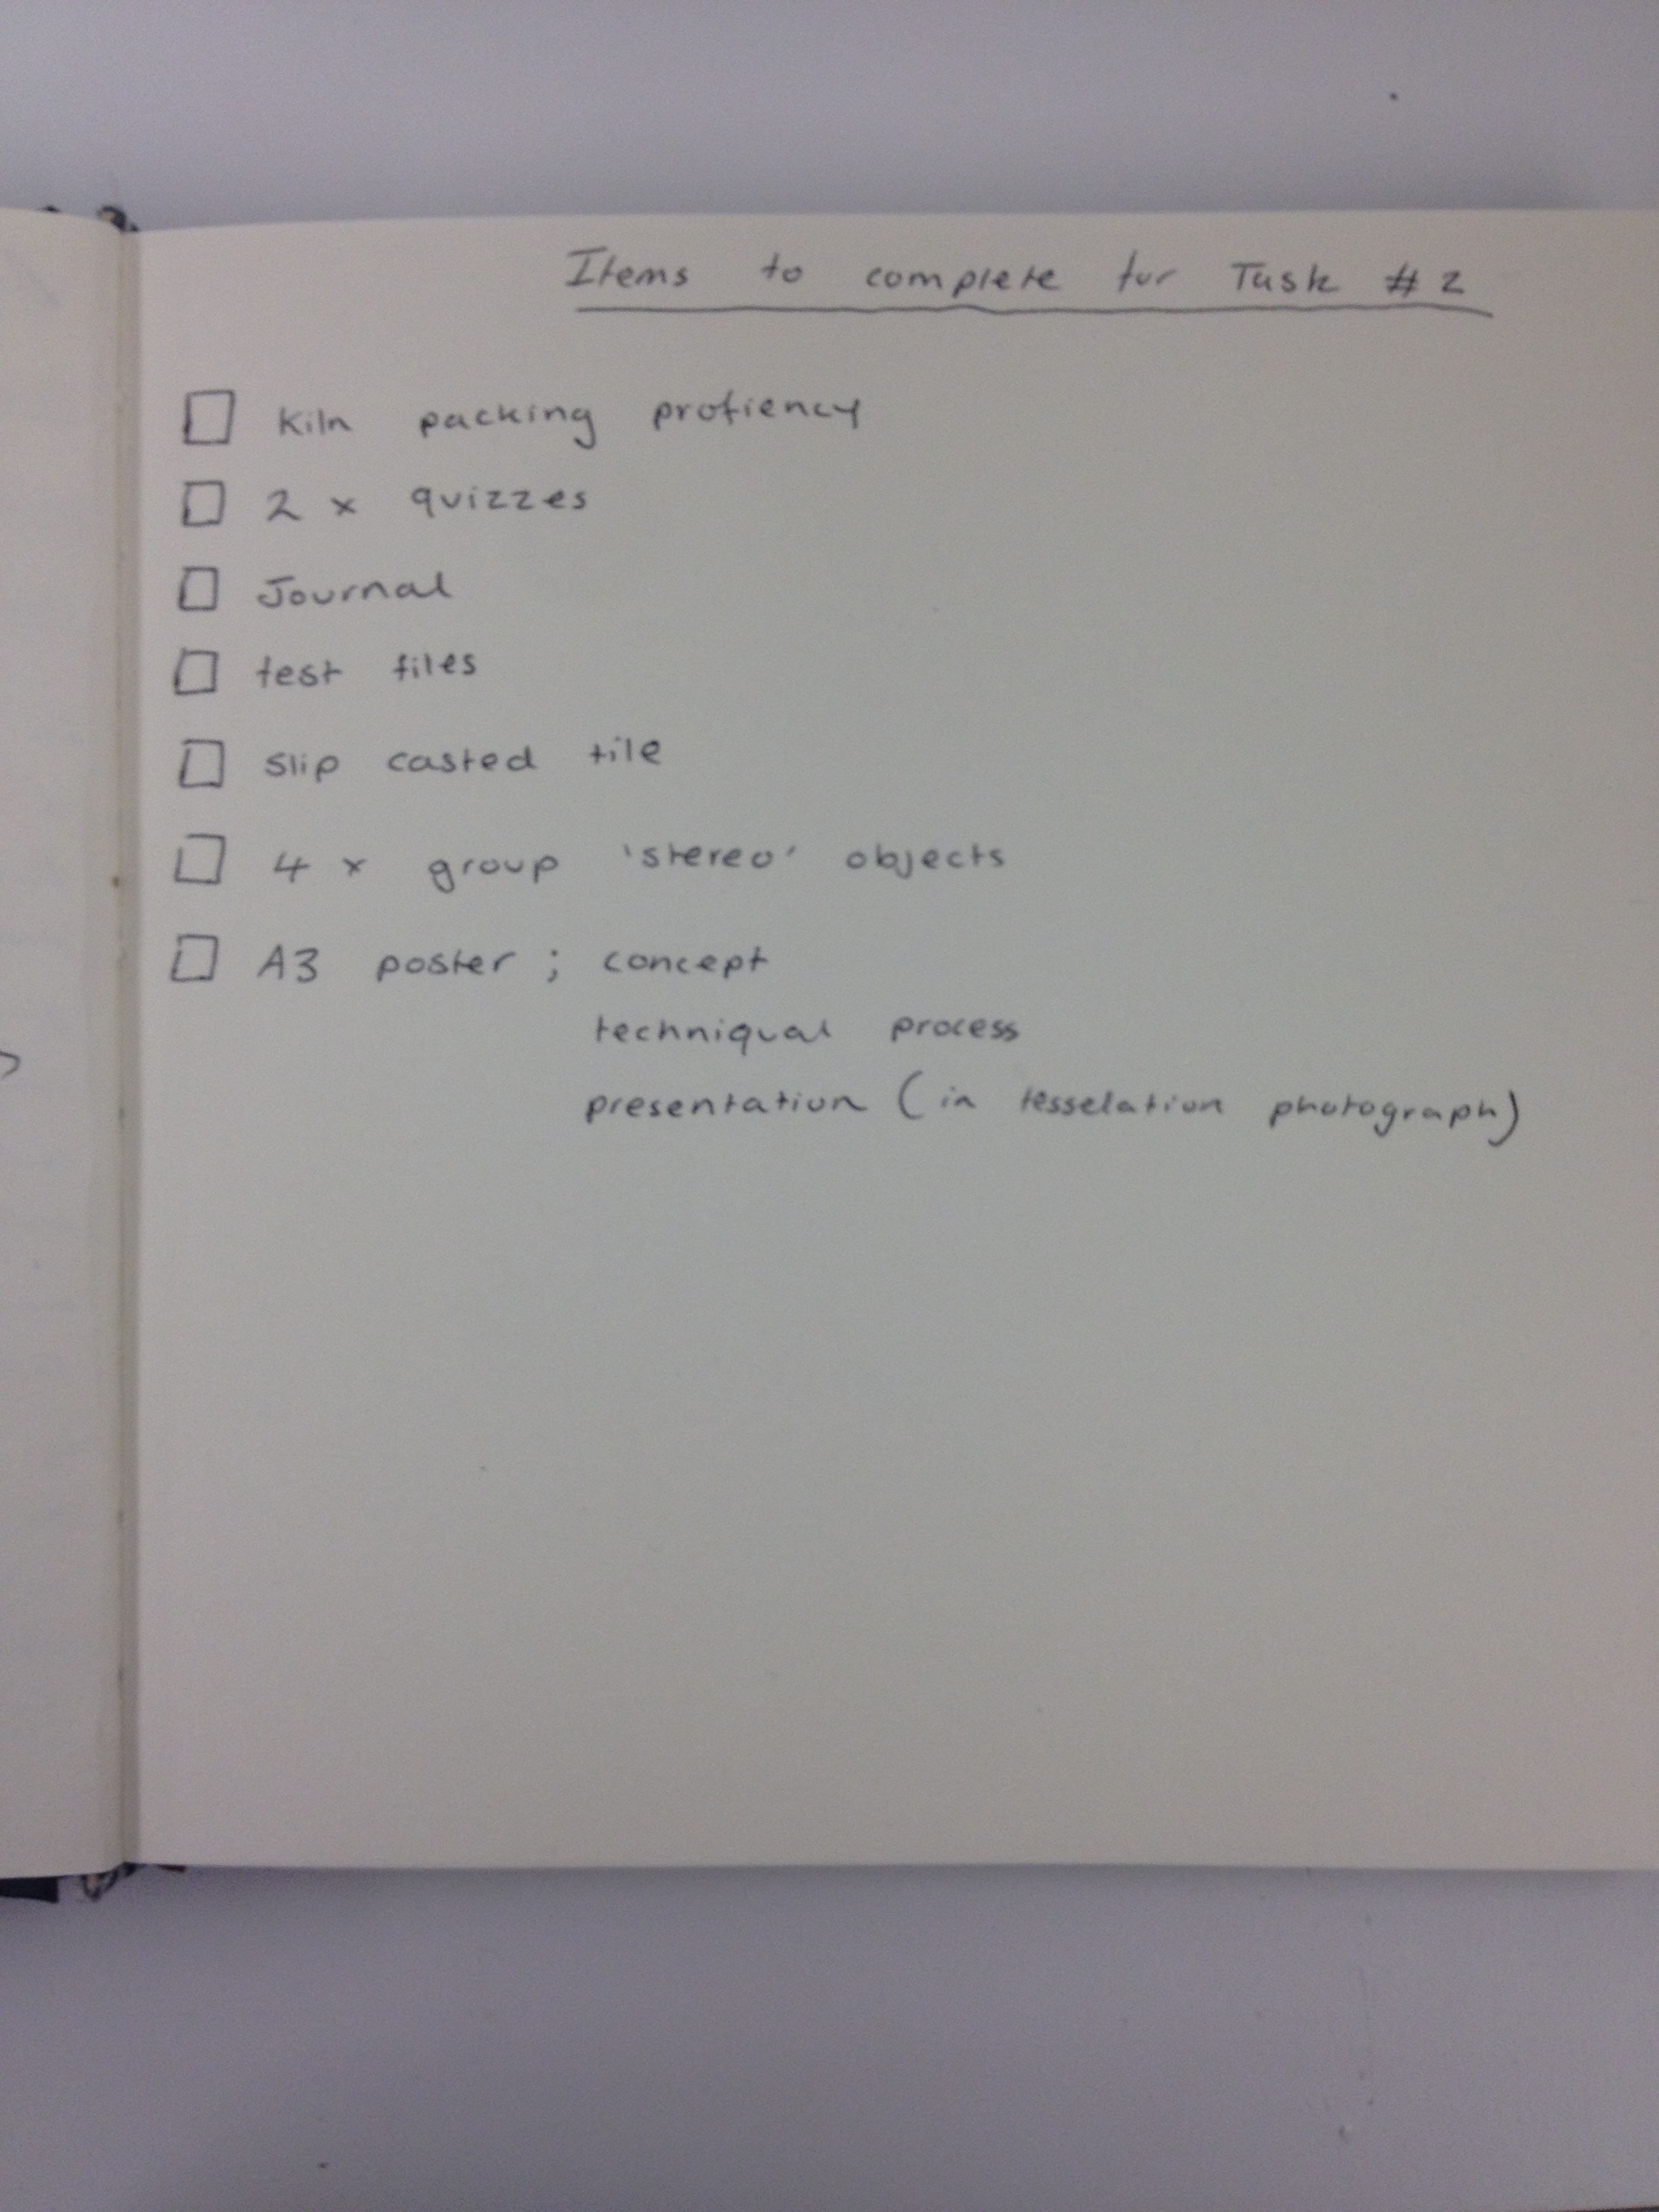 Items to complete for Task #2
Kiln packing profiency
2 x quizzes
Journal
test tiles
slip casted tile
4 x group 'stereo' objects
A3 poster ; concept
techniqual process
presentation (in tesselation photograph)